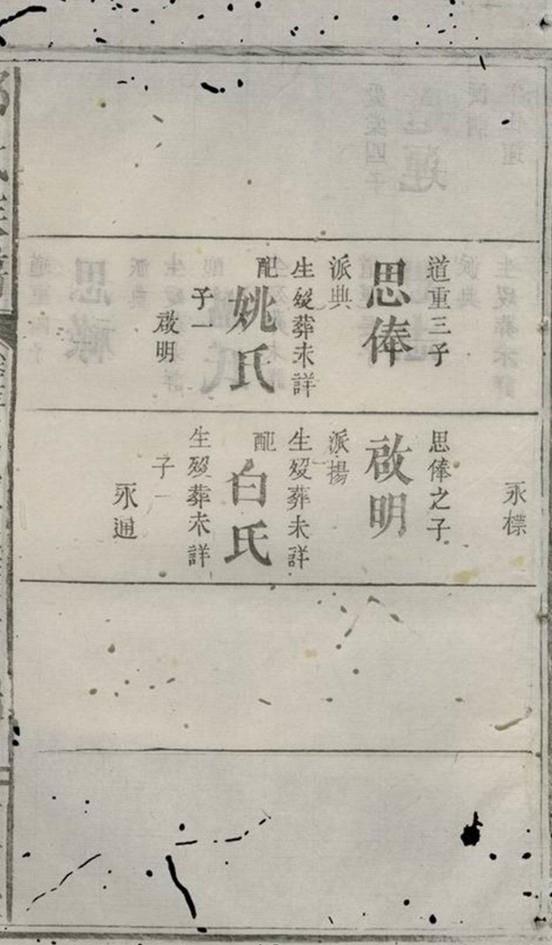 道重三子
思俸
派典
生殁葬未詳
配
姚氏
子一
啟明
永標
思俸之子
啟明
派揚
生殁葬未詳
配
白氏
生殁葬未詳
子一
永通